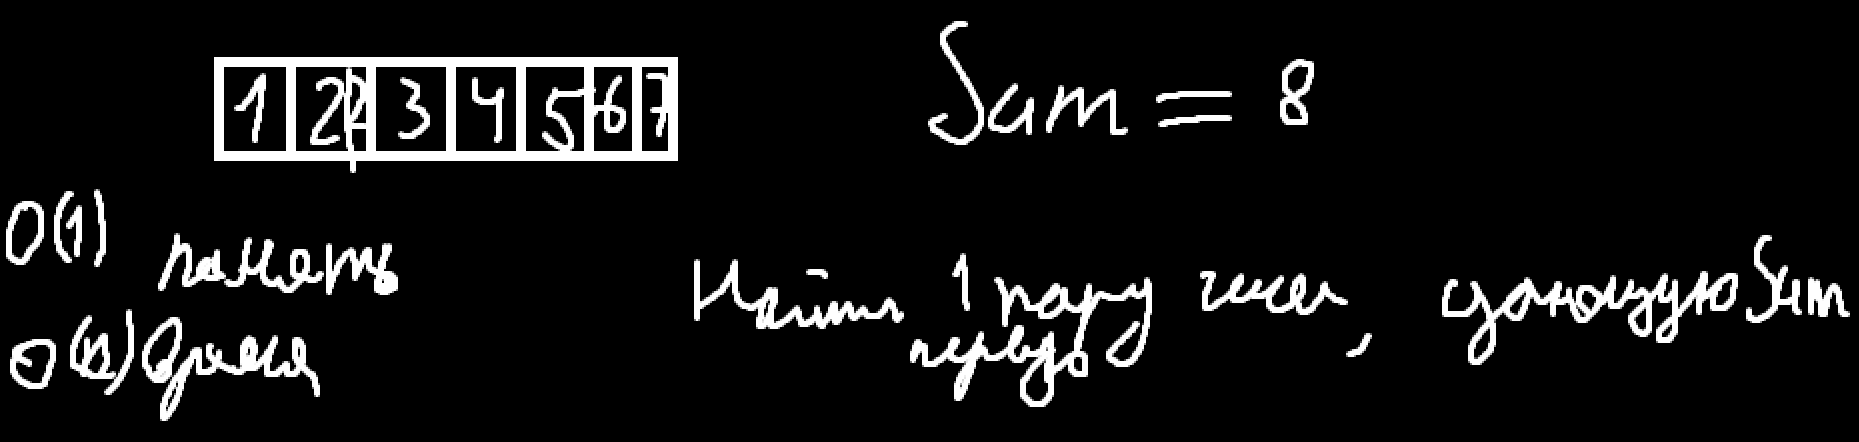 1 2 2 3 4 5 6 7
Sum = 8
O(1) память
O(n) время
Найти 1 пару чисел,
первую
Sum